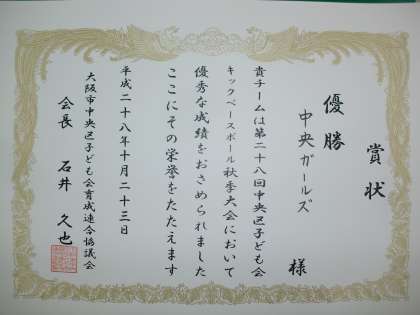 賞状
優勝
中央ガールズ 様
貴チームは第二十八回中央区子ども会
キックベースボール秋季大会において
優秀な成績をおさめられました
ここにその栄誉をたたえます
平成二十八年十月二十三日
大阪市中央区子ども会育成連合協議会
会長 石井 久也